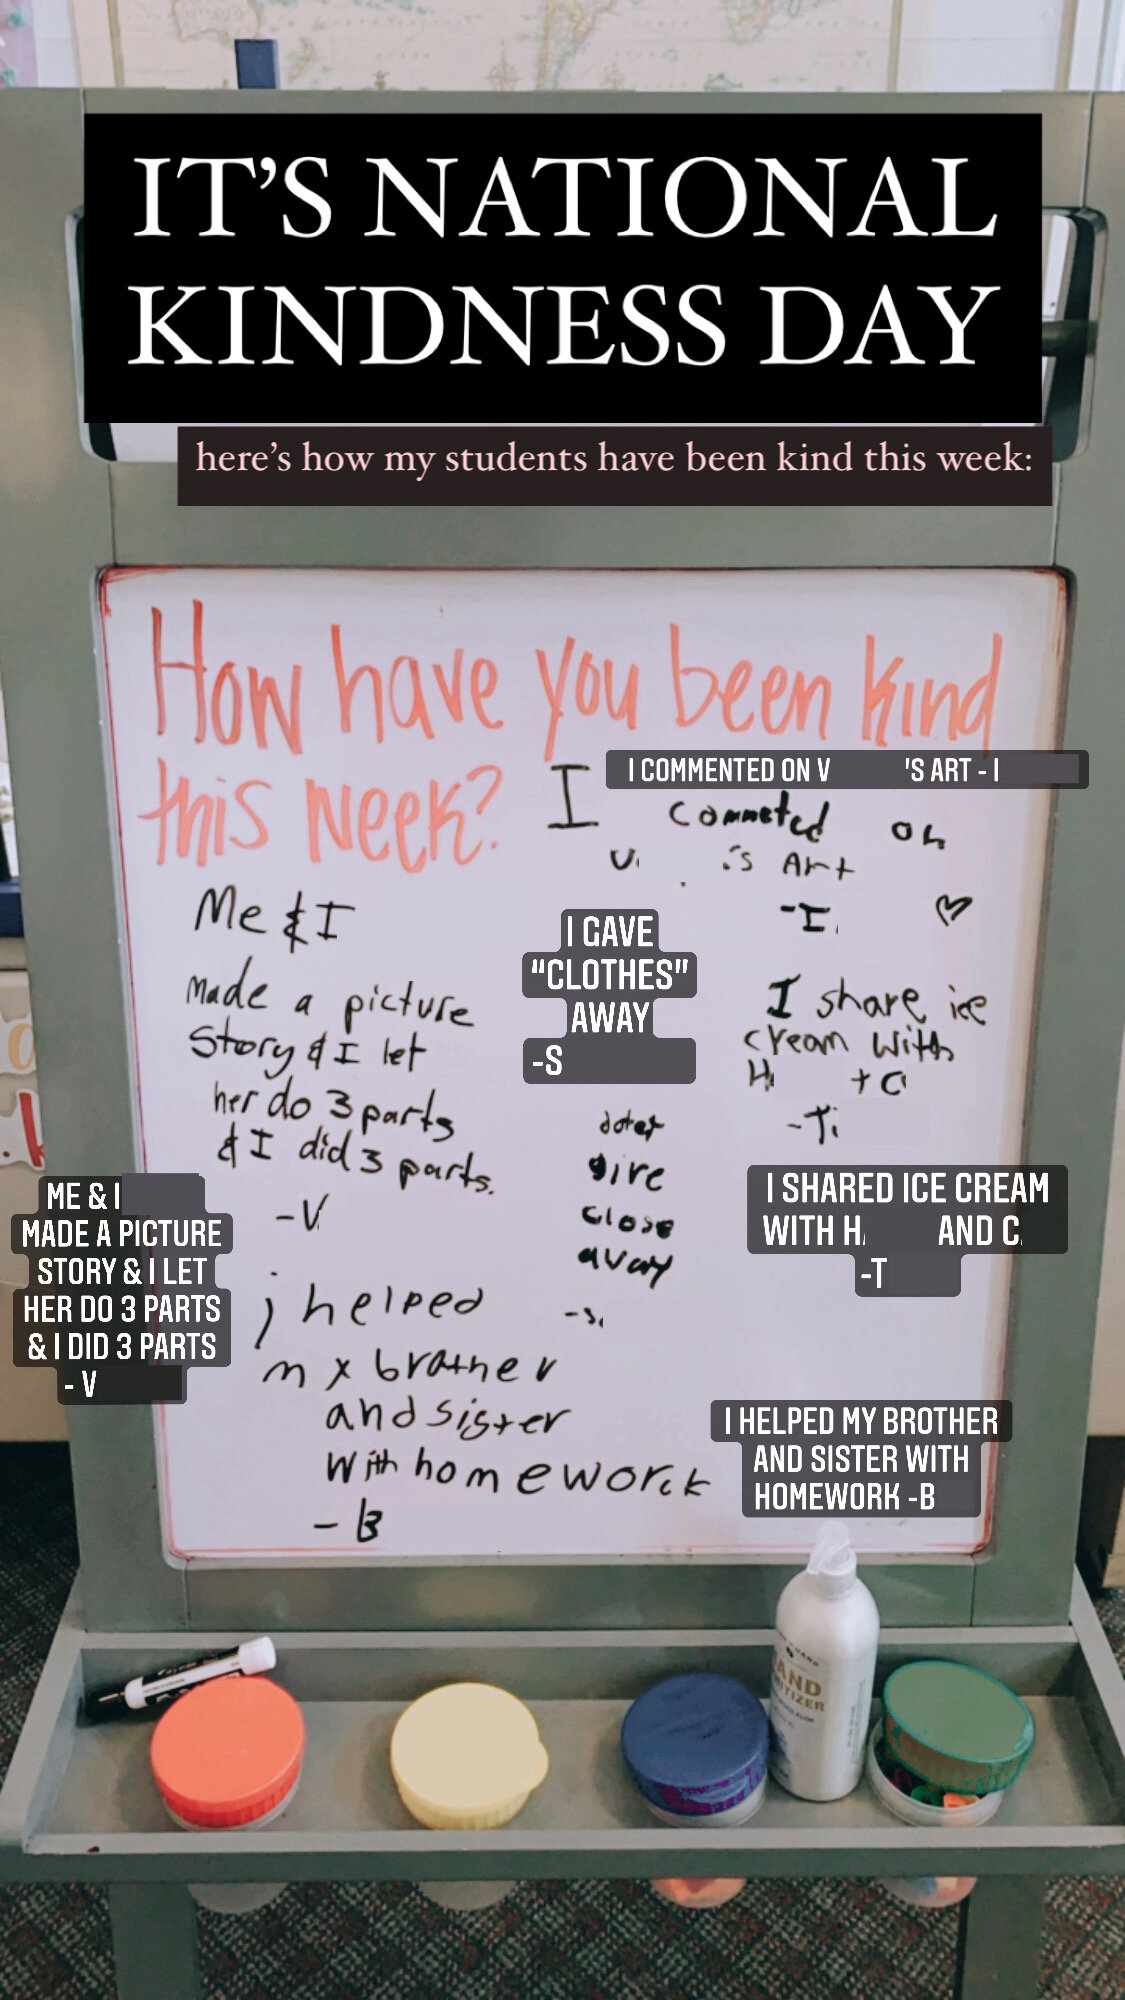 IT'S NATIONAL
KINDNESS DAY
here's how my students have been kind this week:
How have you been kind
this week?
I COMMENTED ON V 'S ART - I
I commeted on
V 's Art
-I
♡
Me & I
made a picture
Story & I let
her do 3 parts
& I did 3 parts.
-V
ME & I
MADE A PICTURE
STORY & I LET
HER DO 3 PARTS
& I DID 3 PARTS
- V
I GAVE
"CLOTHES"
AWAY
-S
give
close
away
-s
I share ice
cream with
H + C
-Ti
I SHARED ICE CREAM
WITH H AND C
-T
j helped
my brather
and sister
with homeworck
- B
I HELPED MY BROTHER
AND SISTER WITH
HOMEWORK -B
HAND
SANITIZER